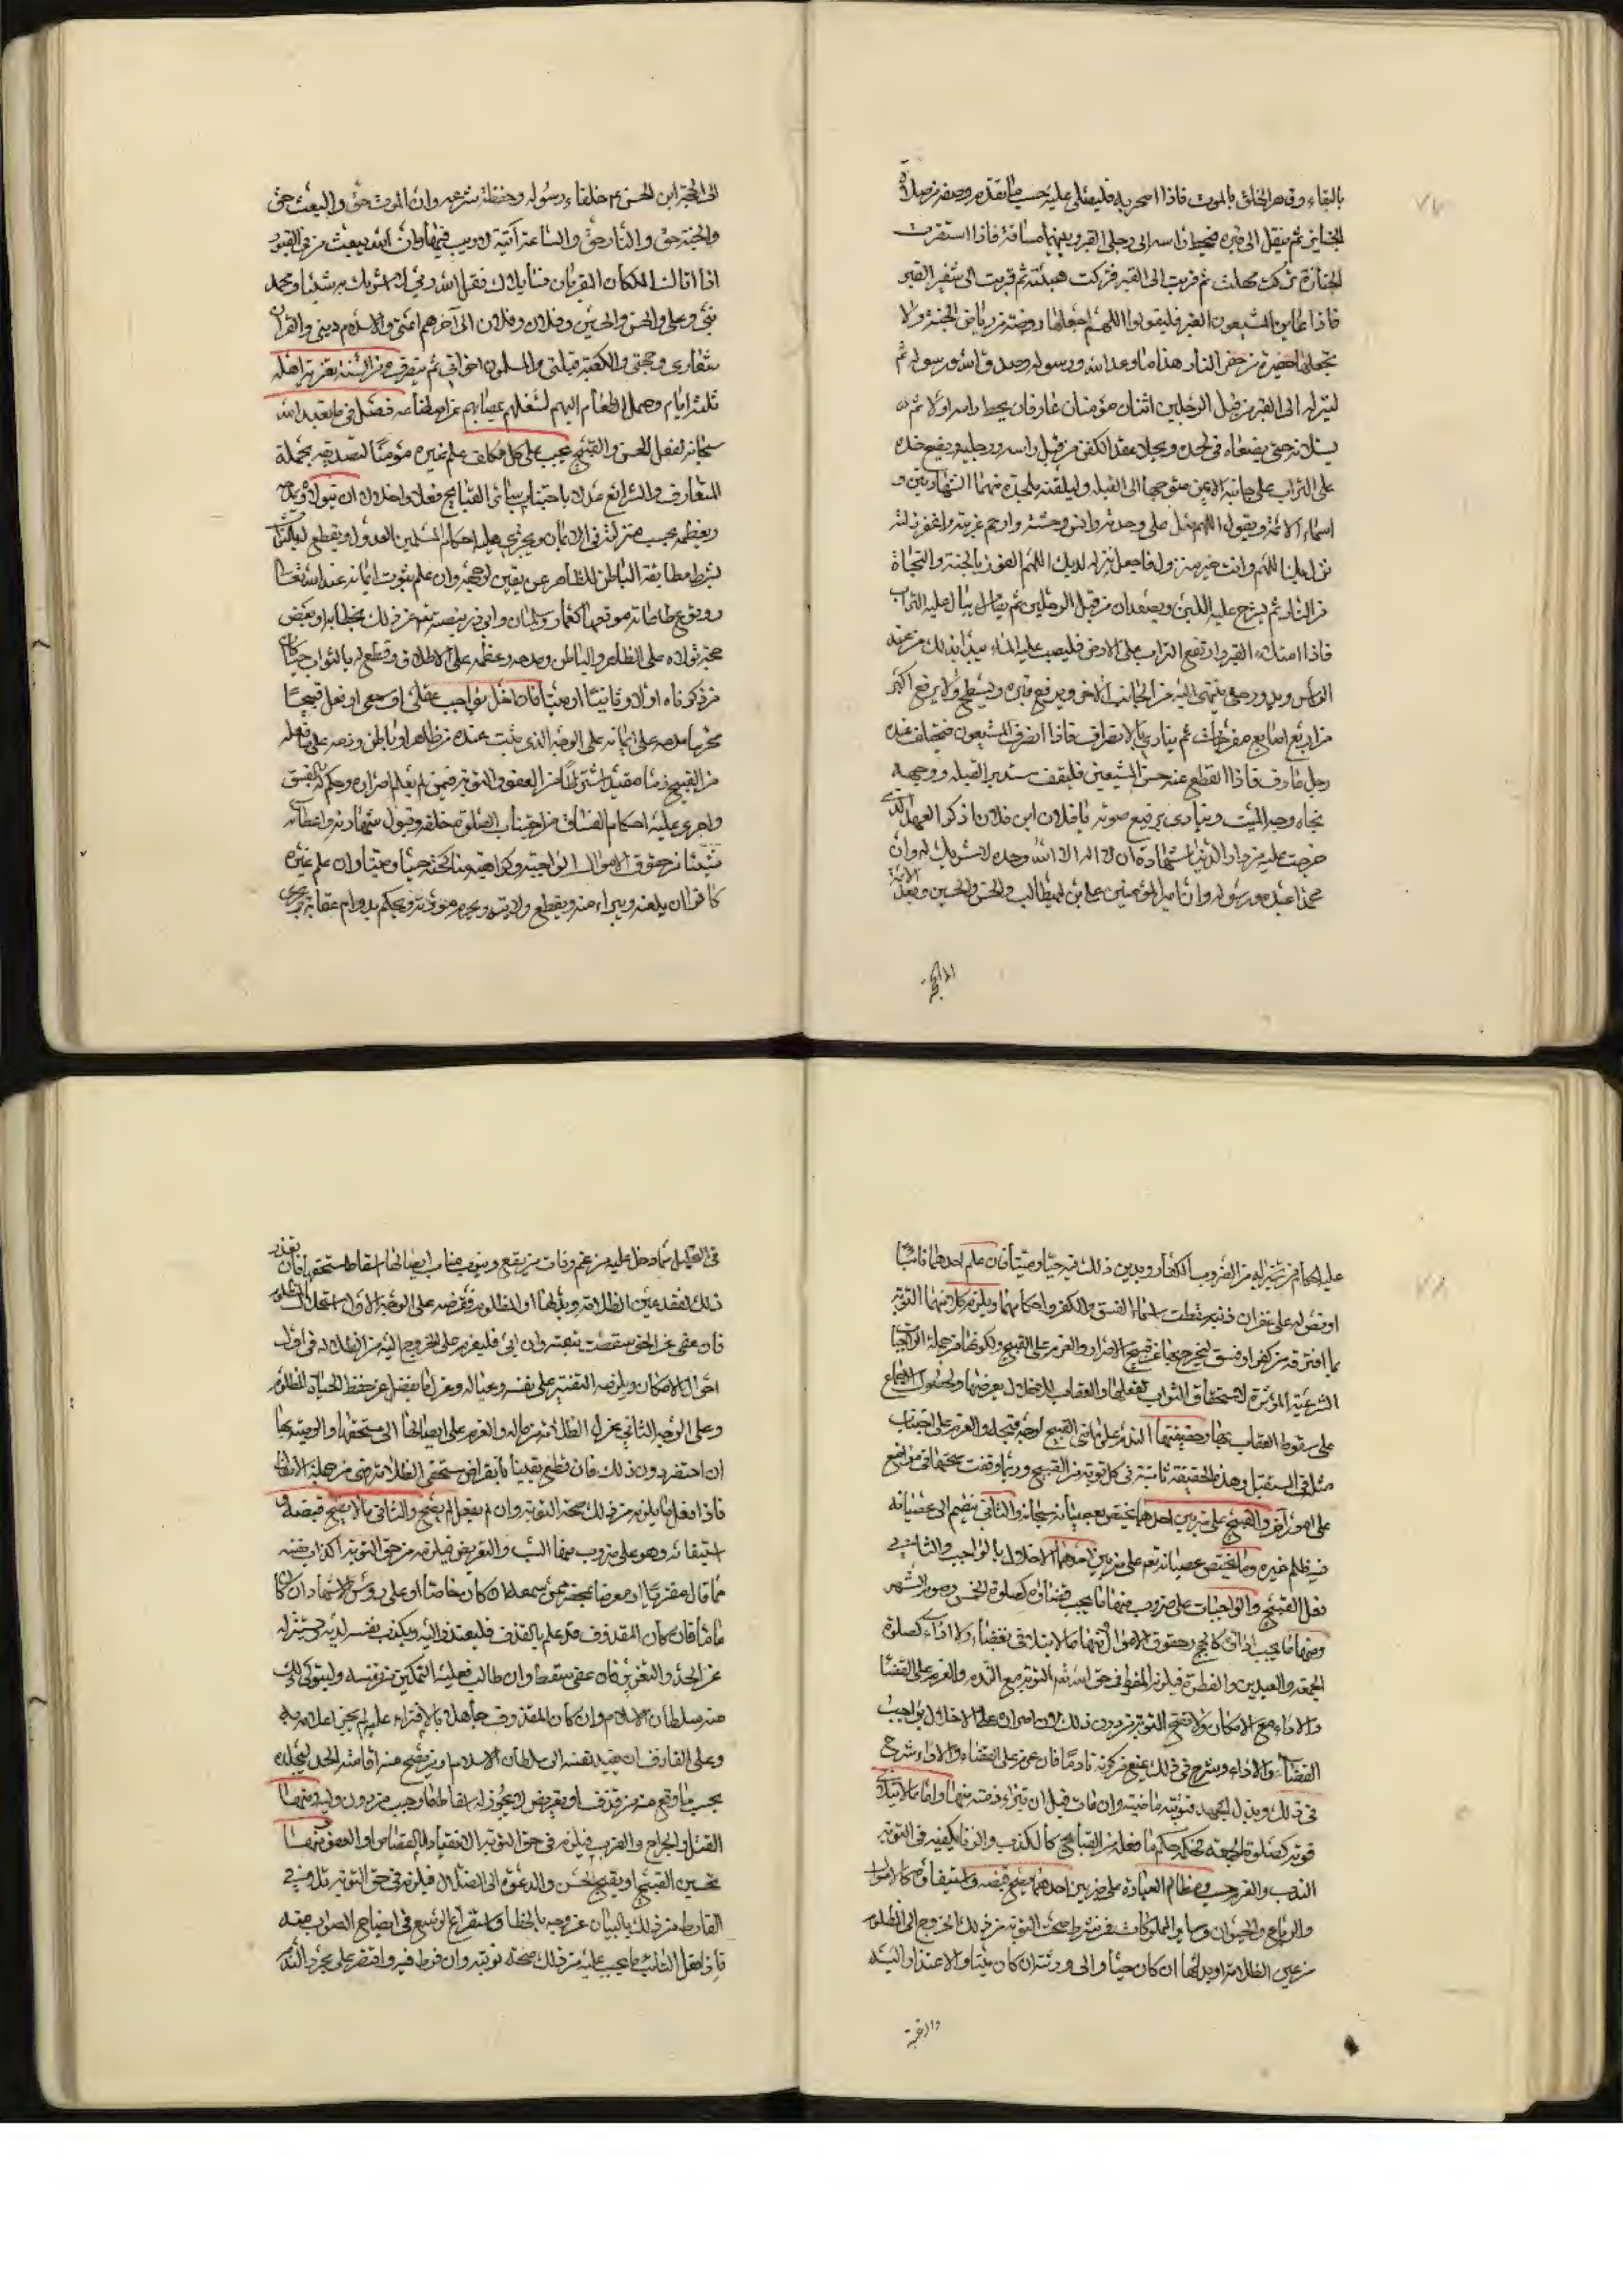 ٧٧
بالبقاء وقهر الخلق بالموت فاذا اصحر به فليصلى عليه حسب ما نقدم وصفه من صلاة
الجنايز ثم ينقل الى قبره فيحط راسه الى رجلى القبر وبينهما مسافة فاذا استقرت
الجنازة تركت مهلة ثم قربت الى القبر فتركت هنيئة ثم قربت الى شفير القبر
فاذا عاين المشيعون القبر فليقولوا اللهم اجعلها روضة من رياض الجنة ولا
تجعلها حفرة من حفر النار هذا ما وعد الله ورسوله وصدق الله ورسوله ثم
لينزله الى القبر من قبل الرجلين اثنان مؤمنان عارفان يحط راسه اولا ثم
يسلانه حتى يضعاه فى لحده ويحلا عقد الكفن من قبل راسه ورجليه ويضع خده
على التراب على جانبه الايمن متوجها الى القبلة وليلقنه ملحده منهما الشهادتين و
اسماء الائمة ويقول اللهم صل على وحدته وانس وحشته وارحم غربته واغفر زلته
نزل بك اللهم وانت خير منزول فاجعل نزله لديك اللهم الفوز بالجنة والنجاة
من النار ثم يشرج عليه اللبن ويصعدان من قبل الرجلين ثم يهال عليه التراب
فاذا امتلاء القبر وارتفع التراب على الارض فليصب عليه الماء يبدأ بذلك من عند
الراس ويدور حتى ينتهى اليه من الجانب الاخر ويرفع قبره ويسطح ولا يرفع اكثر
من اربع اصابع مفرجات ثم ينادى بالانصراف فاذا انصرف المشيعون فيتخلف عنده
رجل عارف فاذا انقطع عنه حس المشيعين فليقف مستدبر القبلة ووجهه
تجاه وجه الميت وينادى برفيع صوته يا فلان ابن فلان اذكر العهد الذى
خرجت عليه من دار الدنيا شهادة ان لا اله الا الله وحده لا شريك له وان
محمدا عبده ورسوله وان امير المؤمنين على بن ابيطالب والحسن والحسين ويعد الائمة
الى الحجة ابن الحسن عم خلفاء رسوله وحفظة شرعه وان الموت حق والبعث حق
والجنة حق والنار حق والساعة آتية لا ريب فيها وان الله يبعث من فى القبور
اذا اتاك الملكان المقربان فسايلاك فقل الله ربى لا اشرك به شيئا ومحمد
نبى وعلى والحسن والحسين وفلان وفلان الى آخرهم ائمتى والاسلام دينى والقرآن
شعارى وحجتى والكعبة قبلتى والمسلمون اخوانى ثم ينصرف ومن السنة تعزية اهله
ثلثة ايام وحمل الطعام اليهم لشغلهم بمصابهم عن اصطناعه فصل فى ما يتعبد الله
سبحانه لفعل الحسن والقبيح يجب على كل مكلف علم غيره مؤمنا لتصديقه بجملة
المعارف والشرائع عدلا باجتنابه سائر القبايح فعلا واخلالا ان يتولاه ويمدحه
ويعظمه بحسب منزلته فى الايمان ويجرى عليه احكام المسلمين العدول ويقطع
بشرط مطابقة الباطن للظاهر عن يقين لوجهه وان علم ثبوت ايمانه عند الله تعالى
ووقوع طاعاته موقعها كعمار وسلمان وابى ذر بنصه تعم عن ذلك بخطابه او بعض
حججه تولاه على الظاهر والباطن ومدحه وعظمه على الاطلاق وقطع له بالثواب
من ذكرناه اولا وثانيا او ميتا فان اخل بواجب عقلى او سمعى او فعل قبيحا
مخرما مدحه على ايمانه على الوجه الذى ثبت عنده من ظاهر او باطن وذمه على ما فعله
من القبيح ذما مقيدا مشترطا من العفو والتوبة فيمن لم يعلم اصراره وحكم له بالفسق
واجرى عليه احكام الفساق من اجتناب الصلوة خلفه وقبول شهادته واعطائه
شيئا من حقوق الاموال الواجبة وكراهية مناكحته حيا وميتا وان علم غيره
كافرا ان يلعنه ويبراء منه ويقطع ولايته ويحرم مودته ويحكم بدوام عقابه ويجرى
الى الحجة
٧٨
عليه احكام من ضرب الكفار ويدين ذلك فيه حيا وميتا فان علم احدهما تائبا
او نص له على غفران ذنبه سقطت اسماء الفسق والكفر واحكامهما ويلزم كلا منهما التوبة
مما اقترفه من كفر او فسق ليخرج بها عن قبيح الاصرار والعزم على القبيح ولكونها من جملة الواجبات
الشرعية المؤثرة لاستحقاق الثواب لفعلها والعقاب للاخلال بفرضها ولحصول الاجماع
على سقوط العقاب بها وحقيقتها الندم على ماضى القبيح لوجه قبحه والعزم على اجتناب
مثله فى المستقبل وهذه الحقيقة ثابتة فى كل توبة من القبيح وربما وقفت صحتها فى مواضع
على امور آخر والقبيح على ضربين احدهما يختص بمعصيته سبحانه والثانى ينضم الى عصيانه
فيه ظلم غيره وما يختص عصيانه تعم على ضربين احدهما الاخلال بالواجب والثانى
فعل القبيح والواجبات على ضروب منها ما يجب قضاؤه كصلوة الخمس وصوم الشهر
ومنها ما يجب اداؤه كالحج وحقوق الاموال ومنها ما لا يتأتى قضاء ولا اداء كصلوة
الجمعة والعيدين والفطرة فيلزم المفرط فى حق الله تعم التوبة مع الندم والعزم على القضاء
والاداء مع الامكان ولا تصح التوبة من دون ذلك لانه اصرار على الاخلال بواجب
القضاء والاداء وشرح فى ذلك يمنع من كونه نادما فان عزم على القضاء والاداء شرع
فى ذلك وبذل الجهد فتوبته ماضية وان مات قبل ان تبرء ذمته منها واما ما لا يتأتى
فوته كصلوة الجمعة فحكمه حكم ما فعله من القبايح كالكذب والزنا يكفيه فى التوبة
الندم والعزم حسب ومظالم العبادة على ضربين احدهما يصح قبضه واستيفاؤه كالاموال
والرباع والحيوان وساير المملوكات فمن شرط صحة التوبة من ذلك الخروج الى المظلوم
من عين الظلامة او بدلها ان كان حيا والى ورثته ان كان ميتا والاعتذار اليه
فى القليل مما دخل عليه من غم وبات من يقع وينوب مناب ايصالها اسقاط مستحقها فان تعذر
ذلك لفقد عين الظلامة وبدلها او المظلوم ففرضه على الوجه الاول استحلال المظلوم
فان عفى عن الحق سقطت تبعته وان ابى فليعزم على الخروج اليه من الظلامة فى اول
احوال الامكان ويلزمه التقتير على نفسه وعياله وعزل ما يفضل عن حفظ الحياة للمظلوم
وعلى الوجه الثانى عزل الظلامة من ماله والعزم على ايصالها الى مستحقها والوصية بها
ان احتضر دون ذلك فان قطع يقينا بانقراض مستحقى الظلامة فهى من جملة الانفال
فاذا فعل ما يلزمه من ذلك صحت التوبة وان لم يفعل لم يصح والثانى ما لا يصح قبضه و
استيفائه وهو على ضروب منها السب والتعريض فيلزمه من حق التوبة اكذاب نفسه
مما قال مفتريا او معرضا بمحضر من سمعه ان كان خاصا او على رؤس الاشهاد ان كان
عاما فان كان المقذوف قد علم بالقذف فليعتذر اليه ويكذب نفسه لديه ويستنزله
عن الحد والتعزير فان عفى سقط وان طالب فعليه التمكين من نفسه وليتولى ذلك
منه سلطان الاسلام وان كان المقذوف جاهلا بالافتراء عليه لم يجز اعلامه به
وعلى القاذف ان يقيد نفسه الى سلطان الاسلام ومن يصح منه اقامة الحد ليجلده
بحسب ما وقع منه من قذف او تعريض ولا يجوز له اسقاط ما وجب من دون وليه ومنها
القتل والجراح والضرب فيلزمه فى حق التوبة الانقياد للقصاص او العفو ومنها
تحسين القبيح او تقبيح الحسن والدعوة الى الضلال فيلزمه فى حق التوبة تلافى
الفارط من ذلك بالبيان عن وجه الخطاء واستفراغ الوسع فى ايضاح الصواب منه
فاذا فعل التائب ما يجب عليه من ذلك صحة توبته وان فرط فيه واقتصر على مجرد الندم